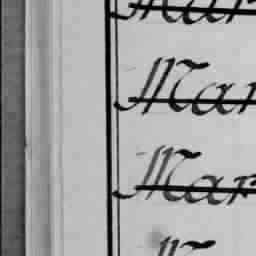 Mar
Mar
Mar
M